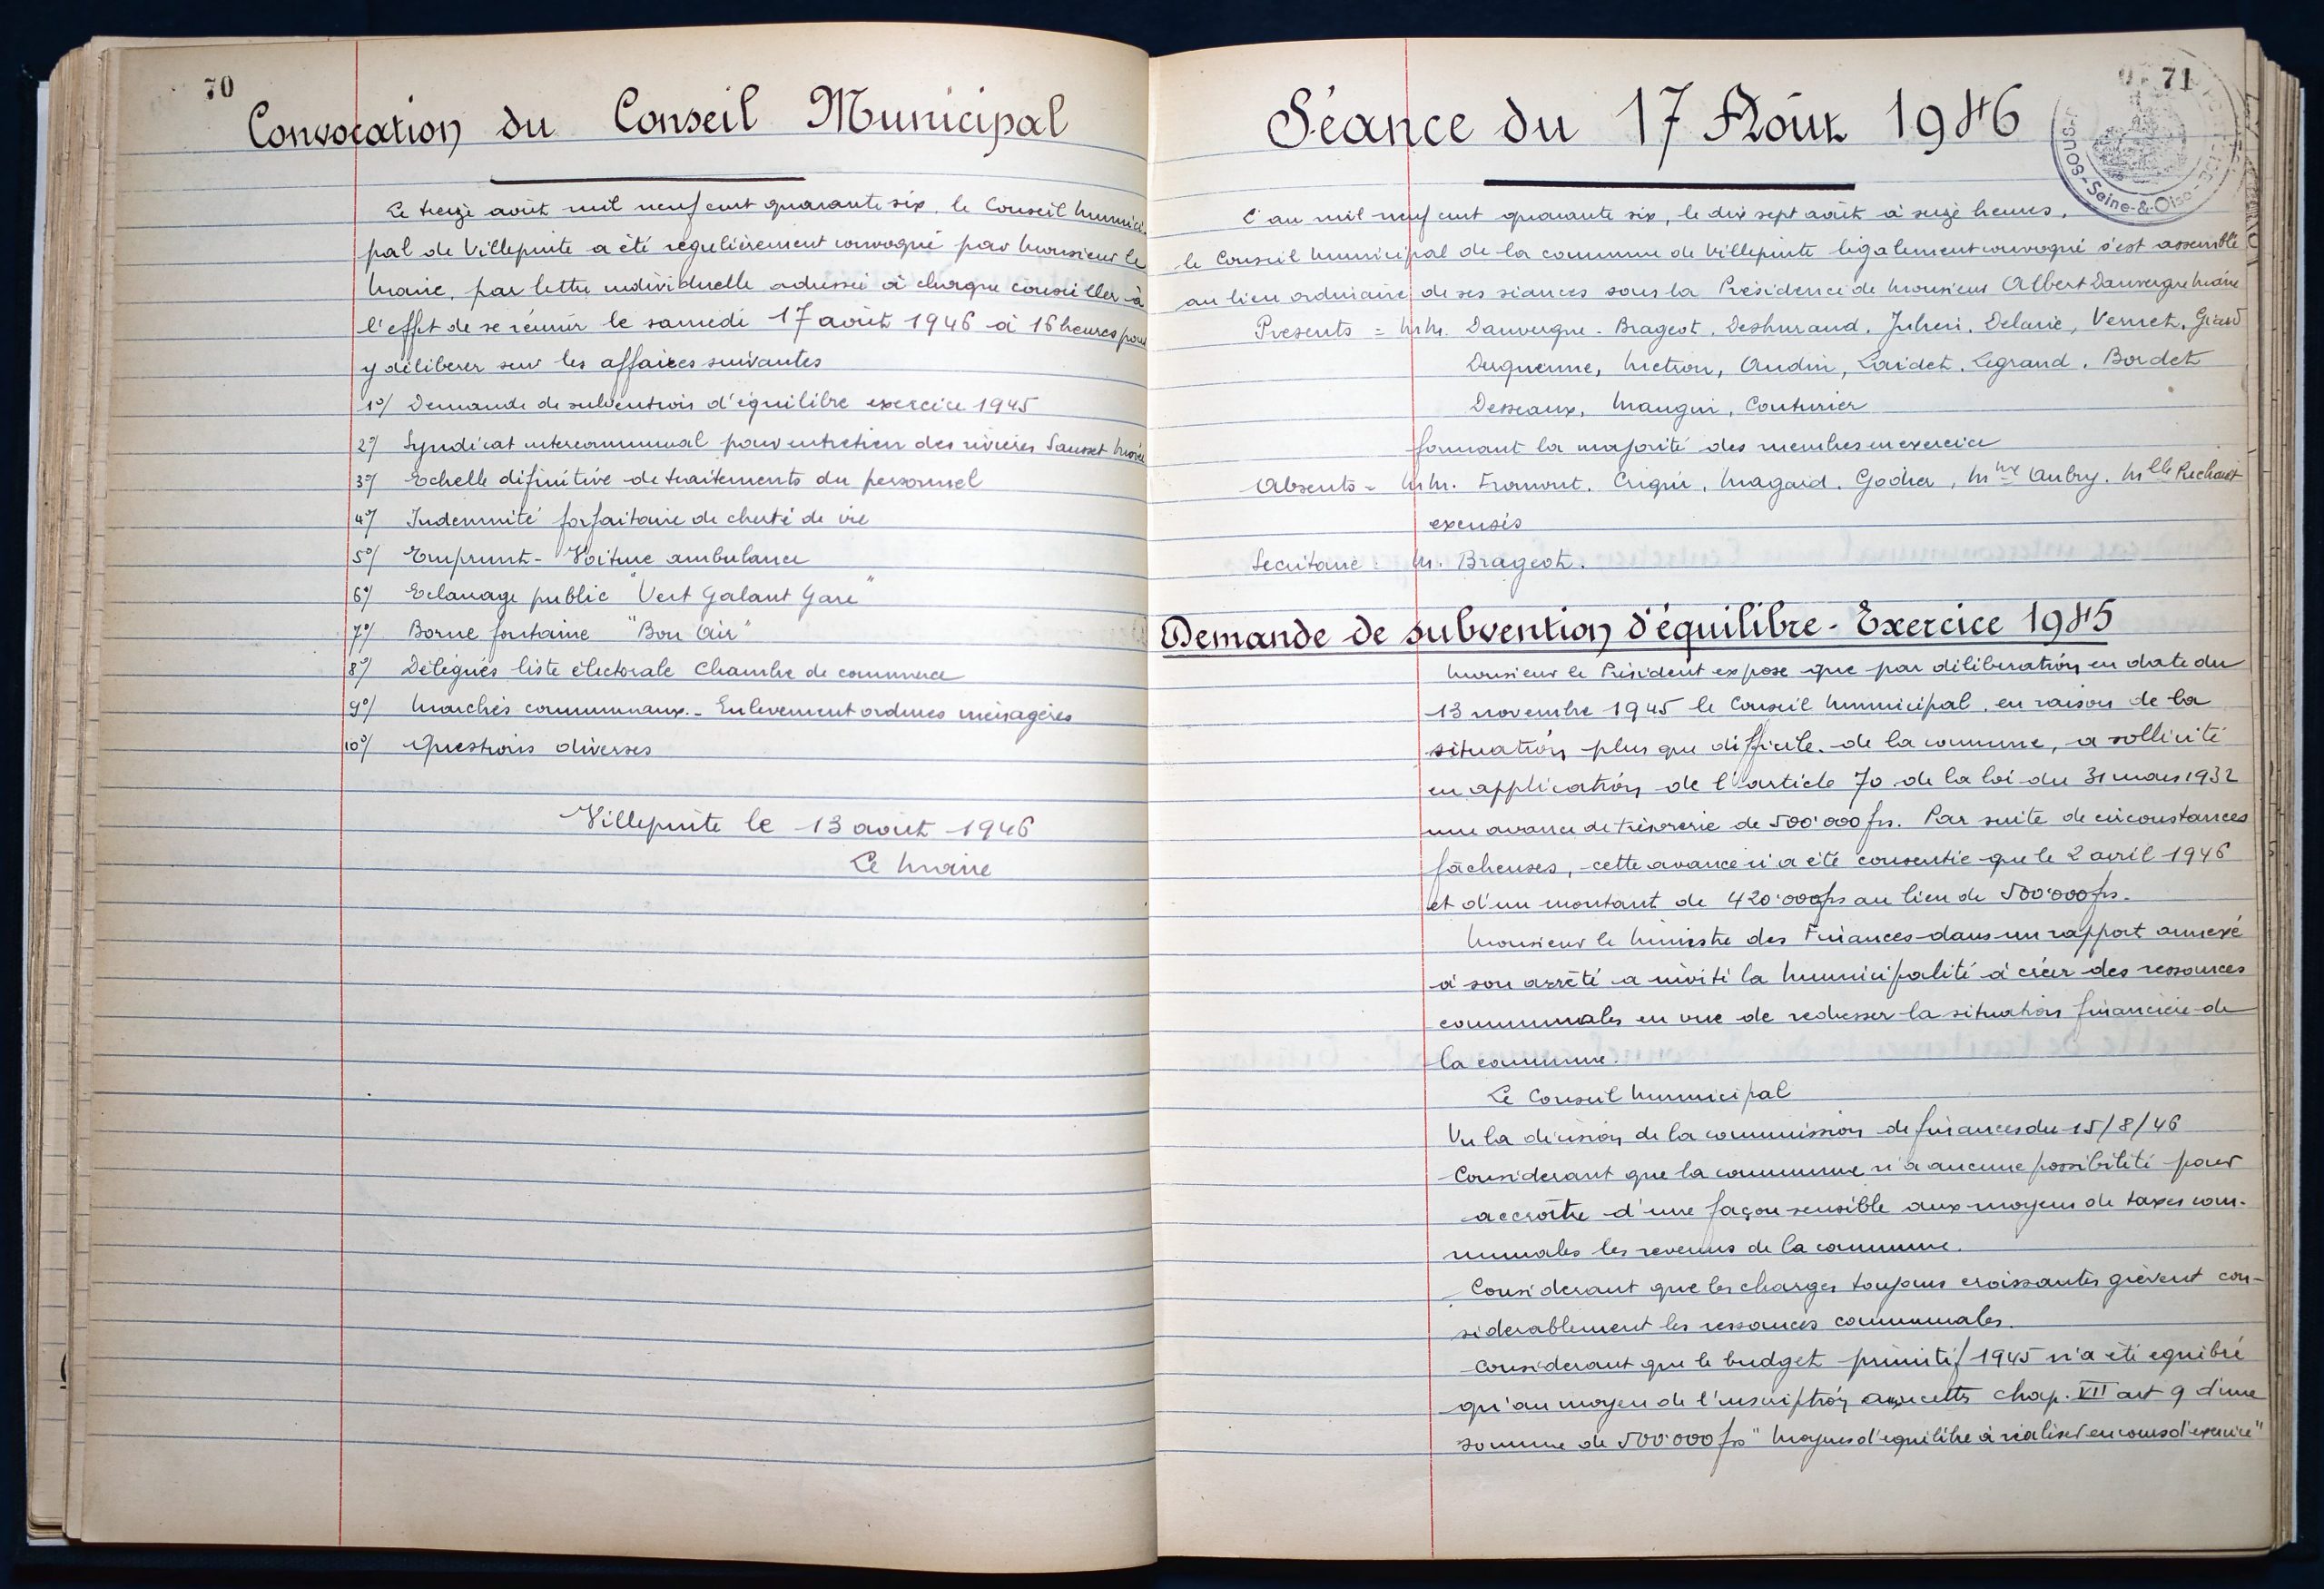 70
Convocation du Conseil Municipal
Le treize août mil neuf cent quarante six, le Conseil Munici-
pal de Villepinte a été régulièrement convoqué par Monsieur le
Maire, par lettre individuelle adressée à chaque conseiller à
l'effet de se réunir le samedi 17 août 1946 à 16 heures pour
y délibérer sur les affaires suivantes
1°/ Demande de subvention d'équilibre exercice 1945
2°/ Syndicat intercommunal pour entretien des rivières Sausset Morée
3°/ Echelle définitive de traitements du personnel
4°/ Indemnité forfaitaire de cherté de vie
5°/ Emprunt - Voiture ambulance
6°/ Eclairage public "Vert Galant Gare"
7°/ Borne fontaine "Bon Air"
8°/ Délégués liste électorale Chambre de commerce
9°/ Marchés communaux. - Enlevement ordures ménagères
10°/ Questions diverses
Villepinte le 13 août 1946
Le Maire
71
Séance du 17 Août 1946
Seine-&-Oise
L'an mil neuf cent quarante six, le dix sept août à seize heures,
le Conseil Municipal de la commune de Villepinte légalement convoqué s'est assemblé
au lieu ordinaire de ses séances sous la Présidence de Monsieur Albert Dauvergne Maire
Présents = MM. Dauvergne - Brageot, Julien, Delarie, Vernet, Giard
Duquenne, Audin, Laidet, Legrand, Bordet
Desseaux, Mangin, Couturier
formant la majorité des membres en exercice
Absents = MM. Fromont, Crigni, Magaid, Godier, Mme Aubry, Mlle
excusés
Secrétaire : M. Brageot.
Demande de subvention d'équilibre - Exercice 1945
Monsieur le Président expose que par délibération en date du
13 novembre 1945 le Conseil Municipal, en raison de la
situation plus que difficile de la commune, a sollicité
en application de l'article 70 de la loi du 31 mars 1932
une avance de trésorerie de 500'000 frs. Par suite de circonstances
fâcheuses, cette avance n'a été consentie que le 2 avril 1946
et d'un montant de 420'000 frs au lieu de 500'000 frs.
Monsieur le Ministre des Finances dans un rapport annexé
à son arrêté a invité la Municipalité à créer des ressources
communales en vue de redresser la situation financière de
la commune.
Le Conseil Municipal
Vu la décision de la commission de finances du 15/8/46
Considerant que la commune n'a aucune possibilité pour
accroître d'une façon sensible aux moyens de taxes com-
munales les revenus de la commune.
Considerant que les charges toujours croissantes grèvent con-
siderablement les ressources communales.
Considerant que le budget primitif 1945 n'a été equibré
qu'au moyen de l'inscription aux recettes Chap. VII art 9 d'une
somme de 500'000 frs "Moyens d'equilibre à réaliser en cours d'exercice"